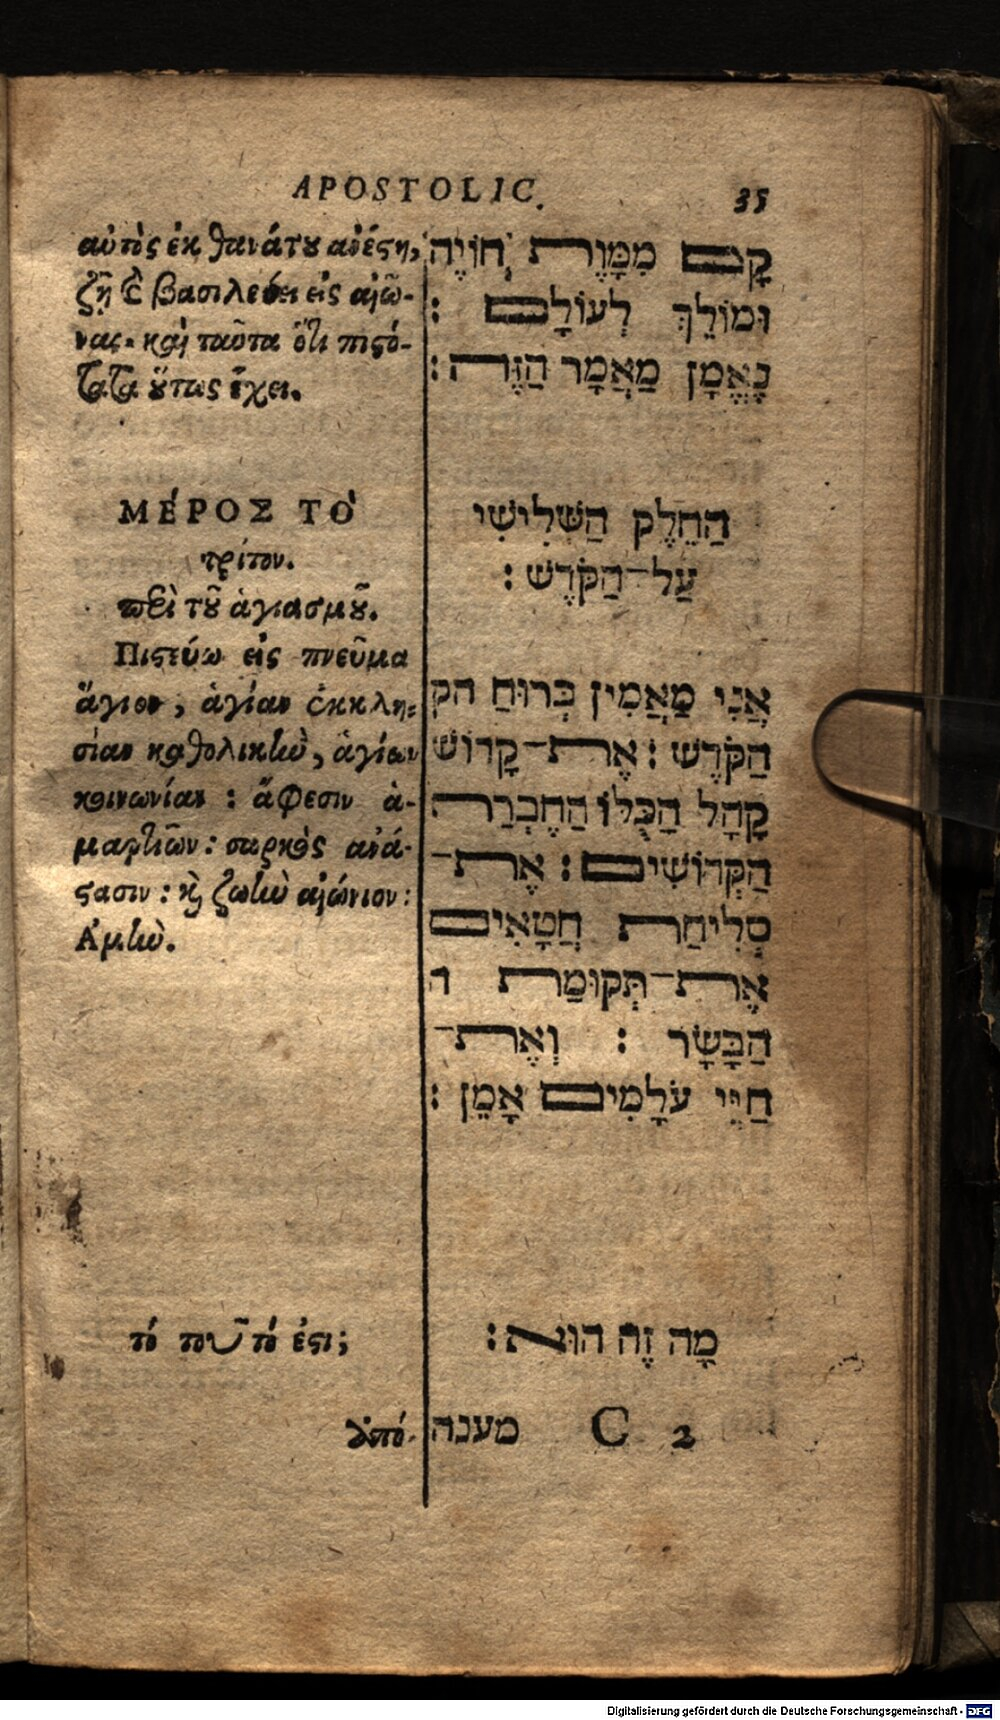 APOSTOLIC. 35
αὐτὸς ἐκ θανάτου ἀνέστη,
ζῇ καὶ βασιλεύει εἰς αἰῶ-
νας. καὶ ταῦτα ὅτι πιστό-
τατα οὕτως ἔχει.
ΜΈΡΟΣ ΤῸ
τρίτον.
περὶ τοῦ ἁγιασμοῦ.
Πιστεύω εἰς πνεῦμα
ἅγιον, ἁγίαν ἐκκλη-
σίαν καθολικὴν, ἁγίων
κοινωνίαν : ἄφεσιν ἁ-
μαρτιῶν : σαρκὸς ἀνά-
στασιν : καὶ ζωὴν αἰώνιον :
Ἀμὴν.
τό τοῦτό ἐστι;
ἀπό-
קָם מִמָּוֶת חוֹיֶה
וּמוֹלֵךְ לְעוֹלָם :
נֶאֱמָן מַאֲמָר הַזֶּה :
הַחֵלֶק הַשְּׁלִישִׁי
עַל־הַקֹּדֶשׁ :
אֲנִי מַאֲמִין בְּרוּחַ הק
הַקֹּדֶשׁ : אֶת־קָדוֹשׁ
קָהָל הַכֻּלּוֹ הַחֶבְרַת
הַקְּדוֹשִׁים : אֶת־
סְלִיחַת חֲטָאִים
אֶת־תְּקוּמַת ה
הַבָּשָׂר : וְאֶת־
חַיֵּי עֹלָמִים אָמֵן :
מָה זֶה הוּא :
מענה C 2